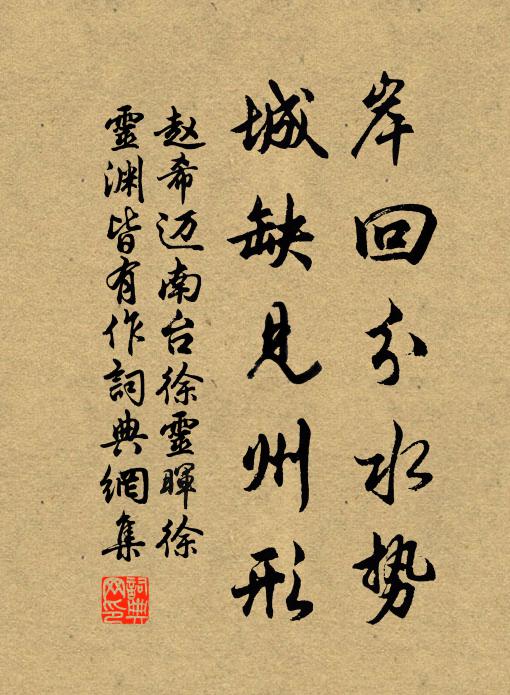 岸回分水势
城缺见州形
赵希迈南台徐灵晖徐
灵渊皆有作詞典網集
詞典网印